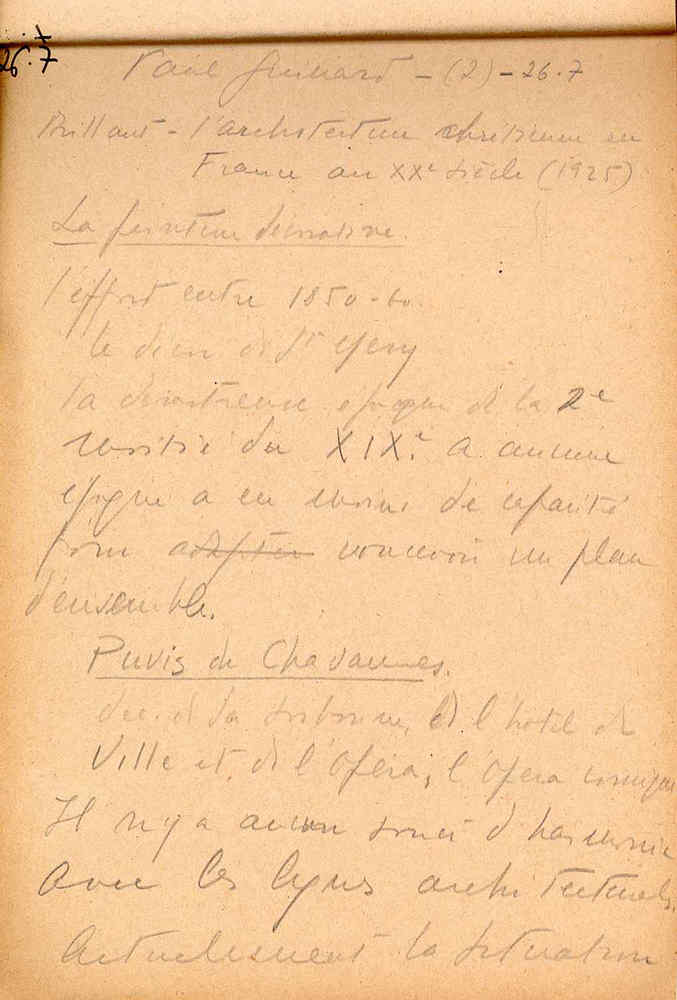 26.7
Paul – (2) – 26.7
Brillant – l'architecture chrétienne en
France au XXe siècle (1925)
La peinture décorative.
l'effort entre 1850–60.
le
la désastreuse époque de la 2e
moitié du XIXe. a aucune
époque a eu moins de capacité
pour adapter concevoir un plan
d'ensemble.
Puvis de Chavannes.
dec. de la Sorbonne, de l'hotel de
Ville et, de l'Opéra, l'Opéra comique
Il n'y a aucun souci d'harmonie
avec les lignes architecturales.
Actuellement la situation